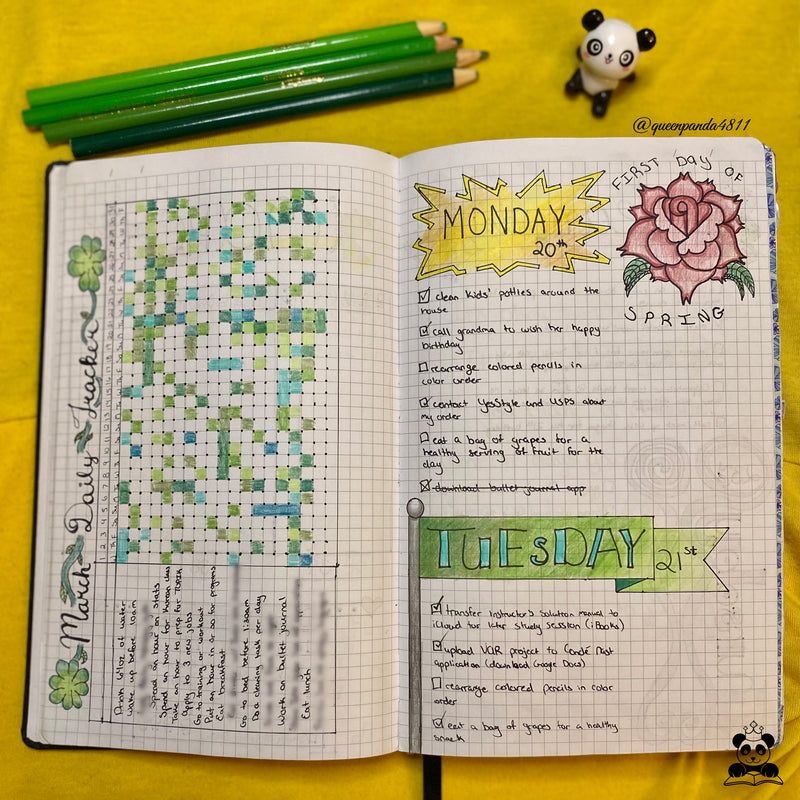 @queenpanda4811
March Daily Tracker
1 2 3 4 5 6 7 8 9 10 11 12 13 14 15 16 17 18 19 20 21 22 23 24 25 26 27 28 29 30 31
Drink 64oz of water
wake up before 10am
Spend an hour on stats
Spend an hour for Korean class
Take an hour to prep for TOPIK
Apply to 3 new jobs
Go to training or workout
Put an hour in or so for programs
Eat breakfast
Go to bed before 1:30am
Do a cleaning task per day
Work on bullet journal
Eat lunch
MONDAY
20th
FIRST DAY OF
SPRING
clean kids' potties around the
house
call grandma to wish her happy
birthday
rearrange colored pencils in
color order
contact YesStyle and USPS about
my order
eat a bag of grapes for a
healthy serving of fruit for the
day
download bullet journal app
TUESDAY
21st
transfer Instructor's Solution manual to
iCloud for later study session (iBooks)
upload VQR project to Condé Nast
application (download Google Docs)
rearrange colored pencils in color
order
eat a bag of grapes for a healthy
snack